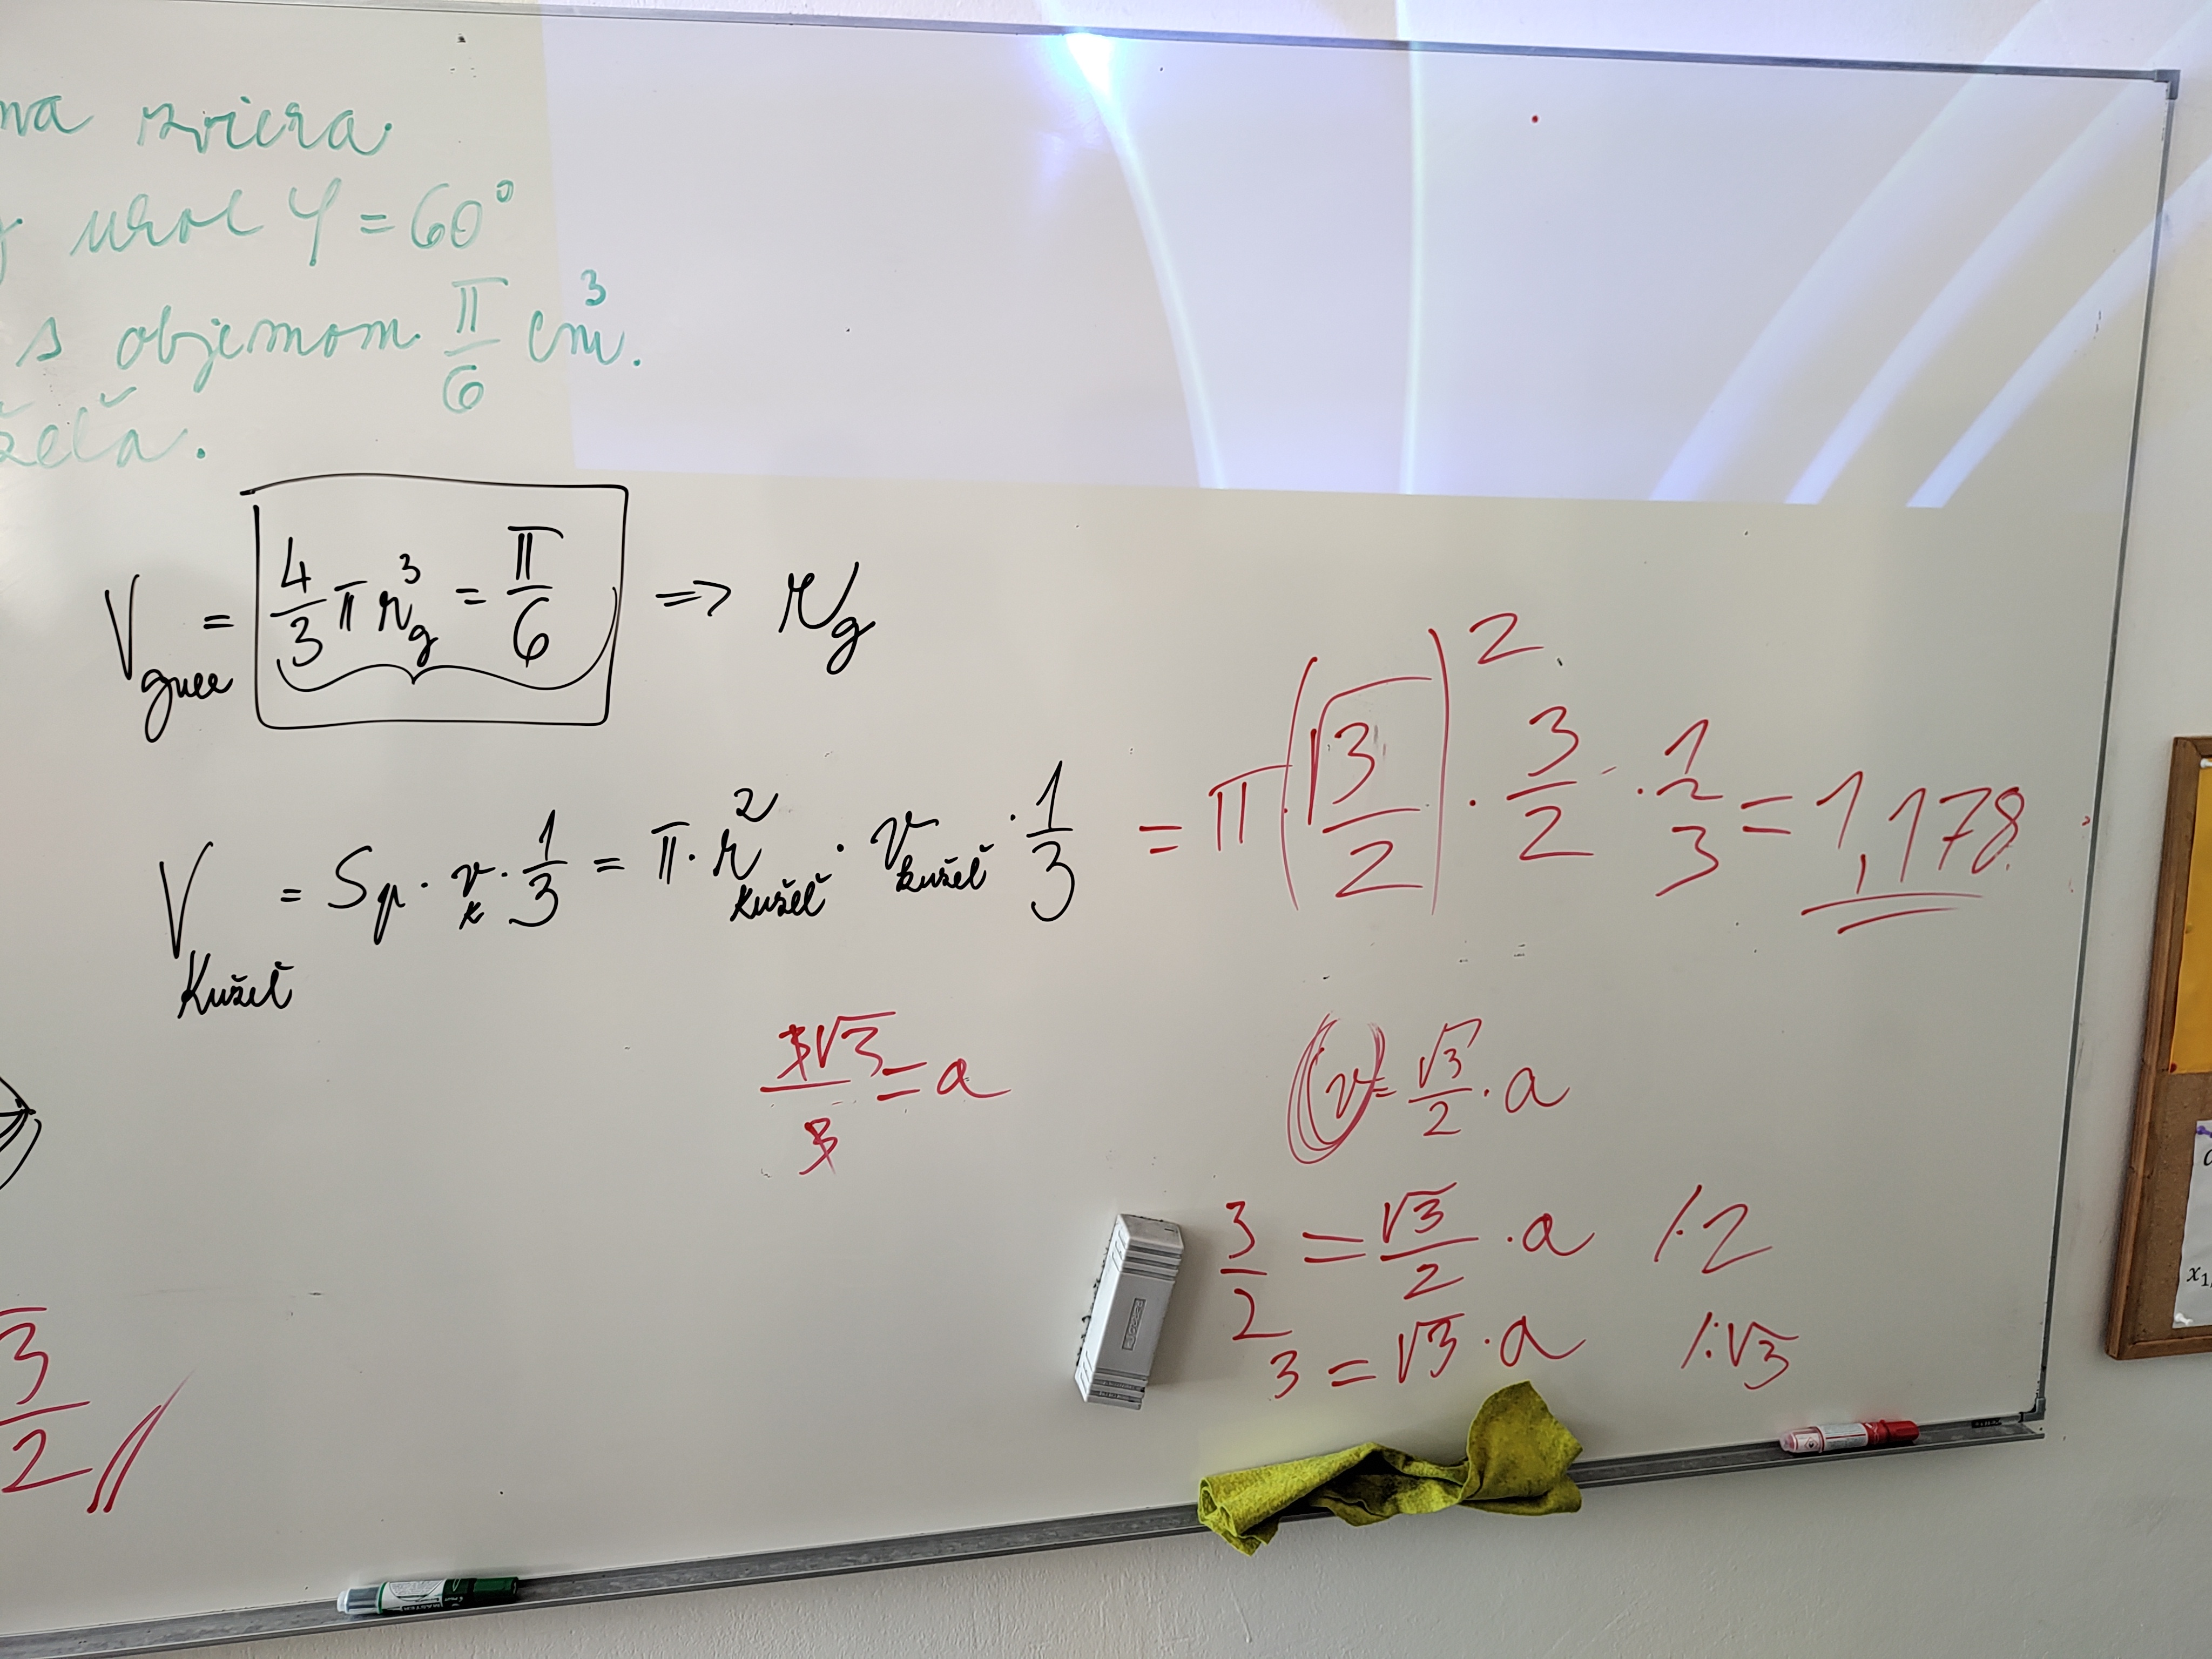 zviera
uhol φ = 60°
s objemom π/6 cm³.
V_gule = 4/3 π r_g³ = π/6 => r_g
V_Kužeľ = Sp · v_k · 1/3 = π · r²_kužeľ · v_kužeľ · 1/3 = π · (√3/2)² · 3/2 · 1/3 = 1,178
3√3/3 = a
v = √3/2 · a
3/2 = √3/2 · a /·2
3 = √3 · a /:√3
3/2
x₁